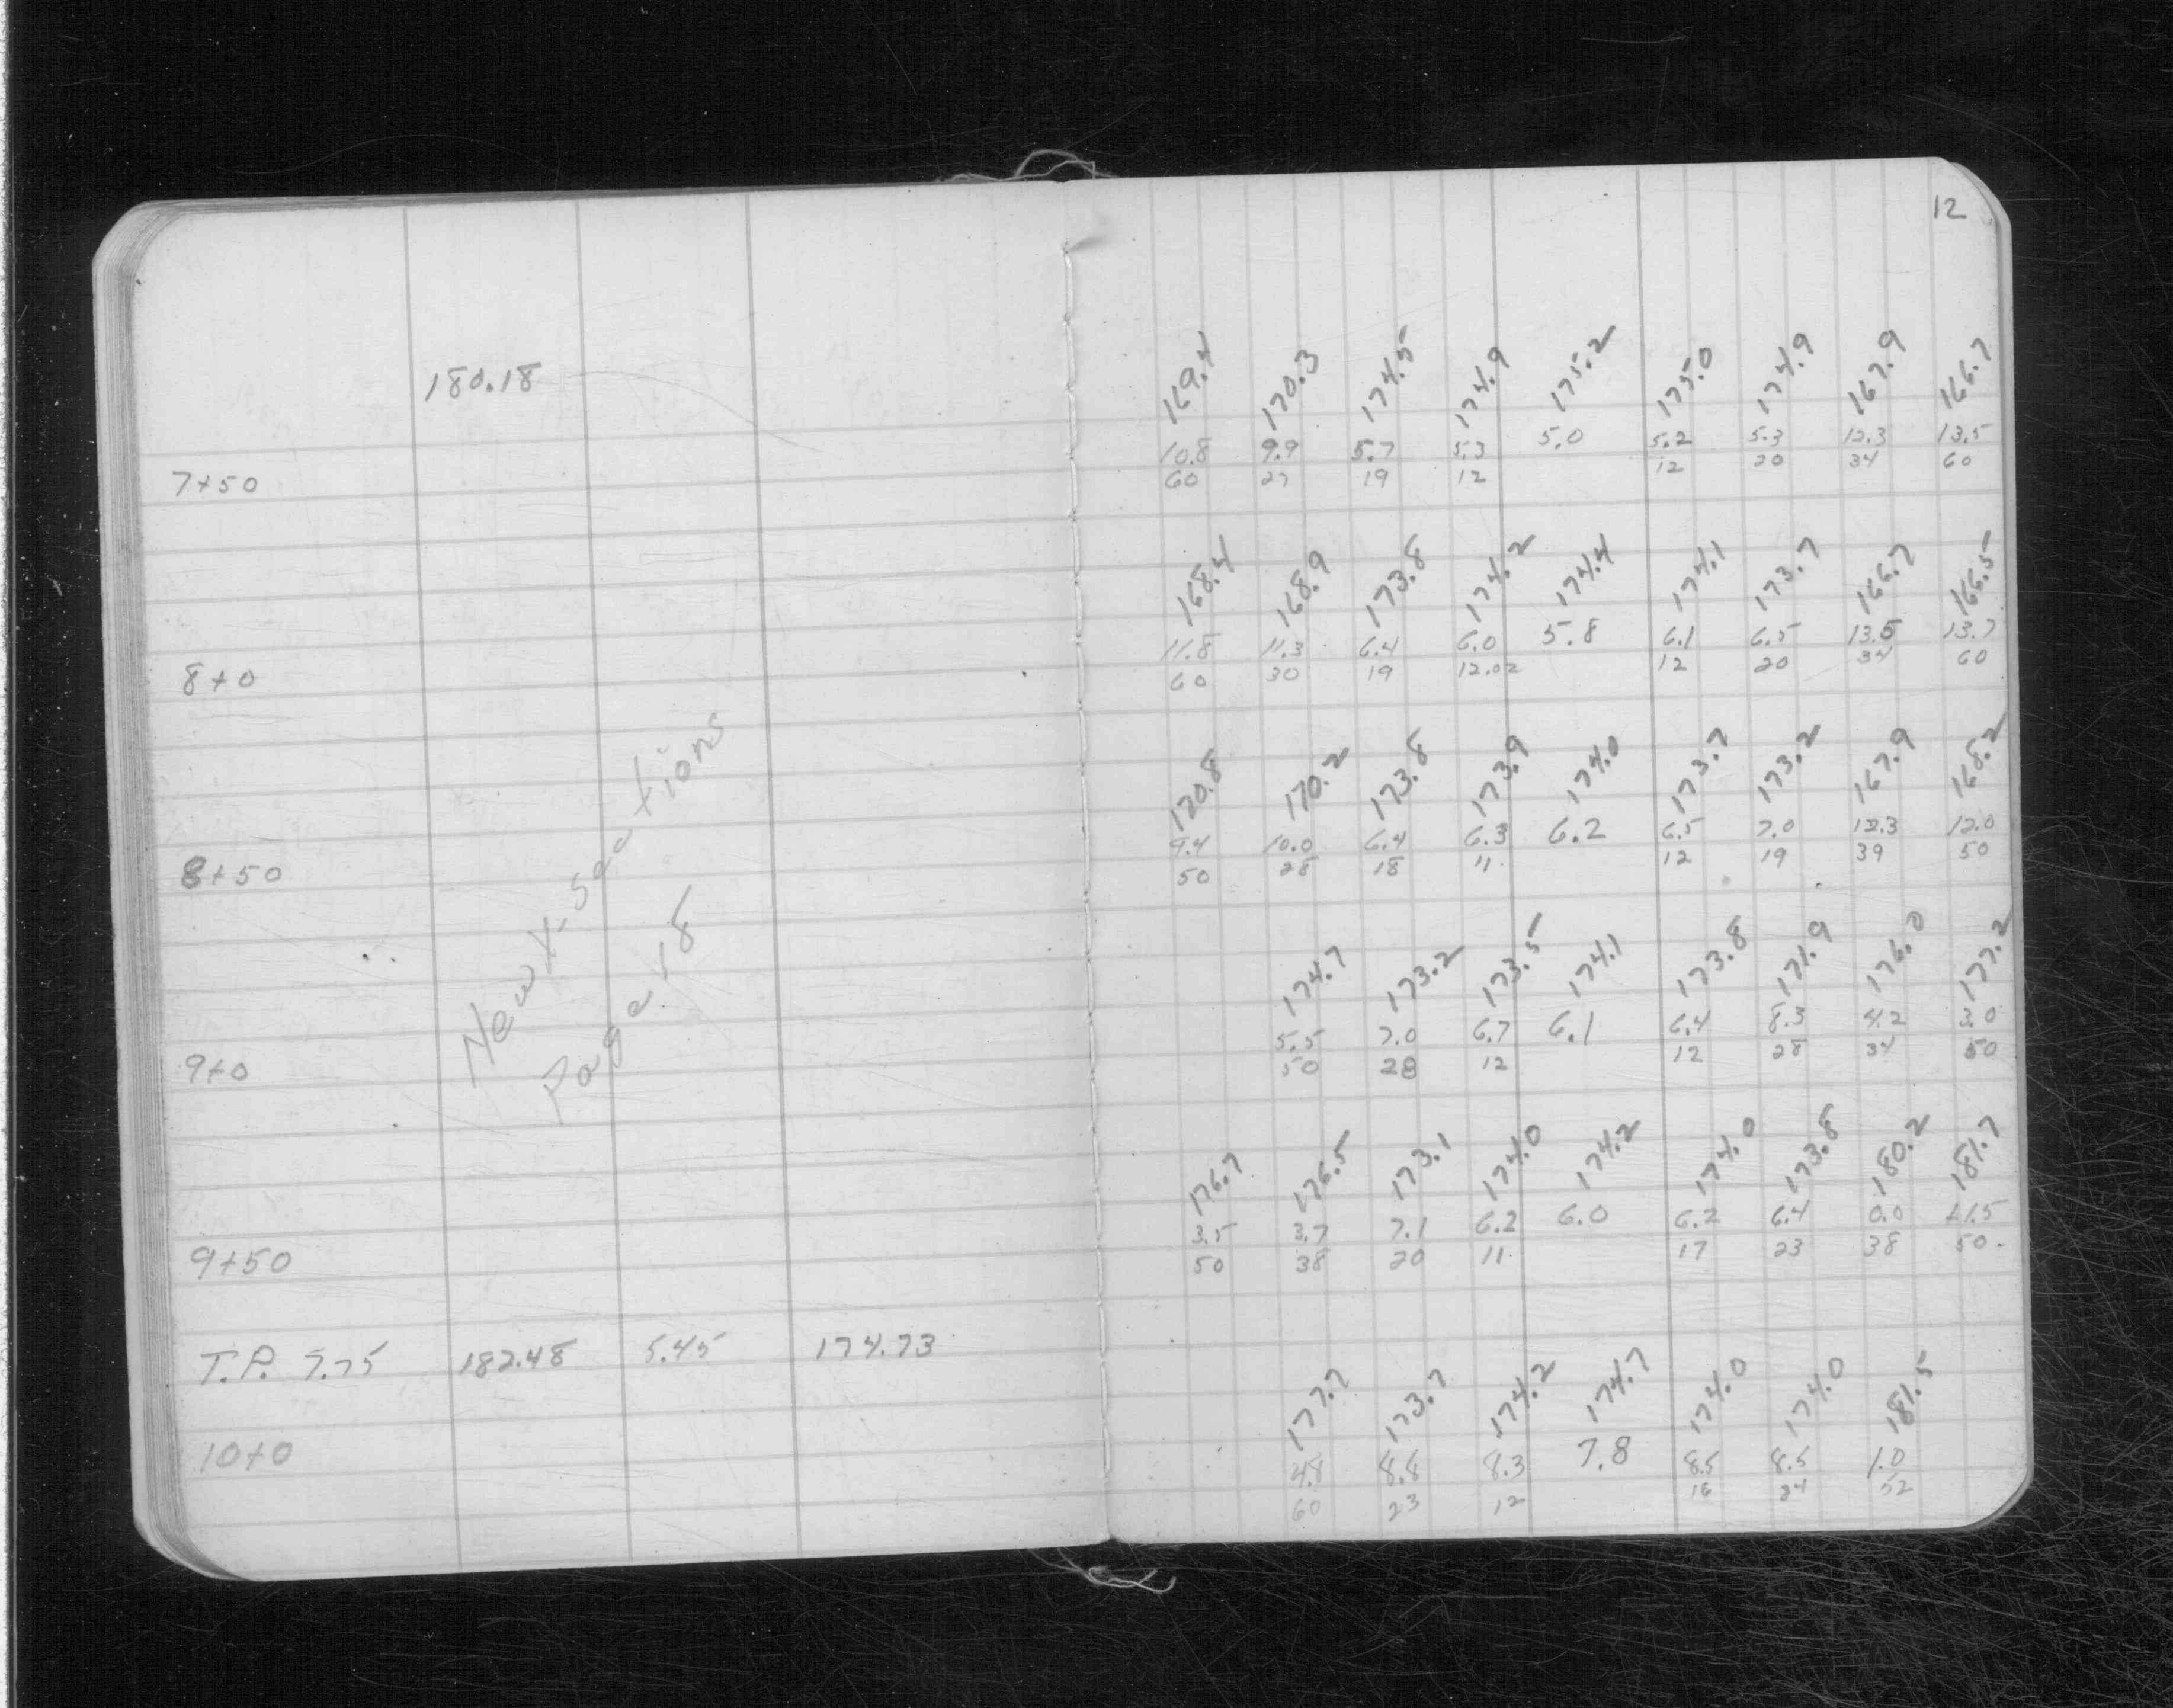 12
180.18
169.4 170.3 174.5 174.9 175.2 175.0 174.9 167.9 166.7
10.8 9.9 5.7 5.3 5.0 5.2 5.3 12.3 13.5
7+50 60 27 19 12 12 20 34 60
168.4 168.9 173.8 174.2 174.4 174.1 173.7 166.7 166.5
11.8 11.3 6.4 6.0 5.8 6.1 6.5 13.5 13.7
8+0 60 30 19 12.02 12 20 34 60
170.8 170.2 173.8 173.9 174.0 173.7 173.2 167.9 168.2
9.4 10.0 6.4 6.3 6.2 6.5 7.0 12.3 12.0
8+50 50 28 18 11 12 19 39 50
New X-Sections
Page 18
174.7 173.2 173.5 174.1 173.8 171.9 176.0 177.2
5.5 7.0 6.7 6.1 6.4 8.3 4.2 3.0
9+0 50 28 12 12 28 34 50
176.7 176.5 173.1 174.0 174.2 174.0 173.8 180.2 181.7
3.5 3.7 7.1 6.2 6.0 6.2 6.4 0.0 +1.5
9+50 50 38 20 11 17 23 38 50
T.P. 7.75 182.48 5.45 174.73
177.7 173.7 174.2 174.7 174.0 174.0 181.5
10+0 4.8 8.8 8.3 7.8 8.5 8.5 1.0
60 23 12 16 24 52